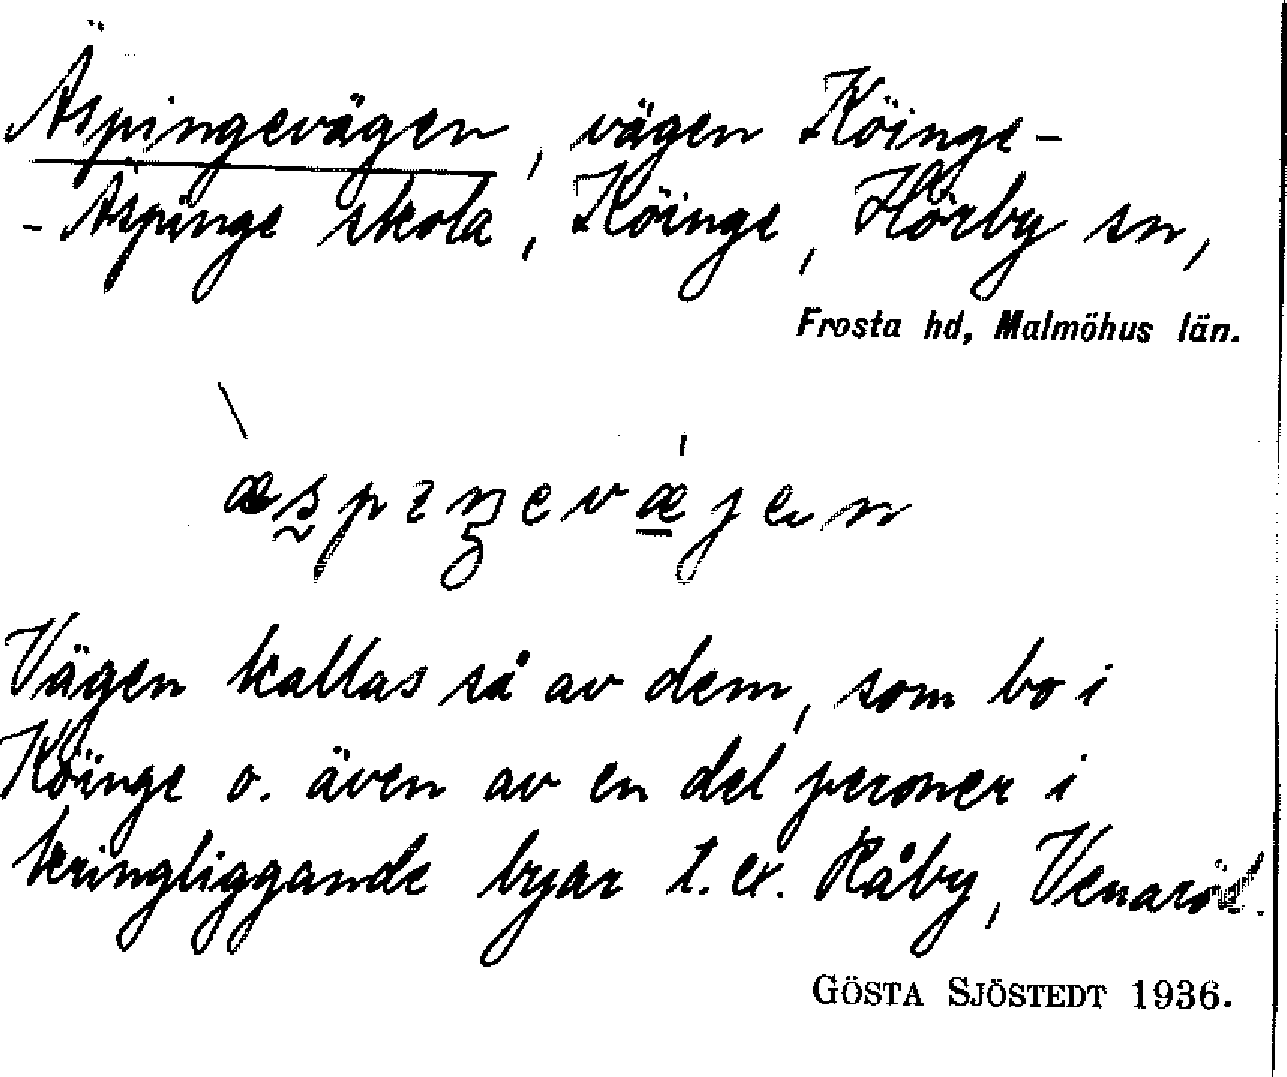 Äspingevägen, vägen Köinge-
-Äspinge skola, Köinge, Hörby sn,
Frosta hd, Malmöhus län.
æspıŋevæjen
Vägen kallas så av dem, som bo i
Köinge o. även av en del peroner i
kringliggande byar t. ex. Råby, Venaröd.
GÖSTA SJÖSTEDT 1936.